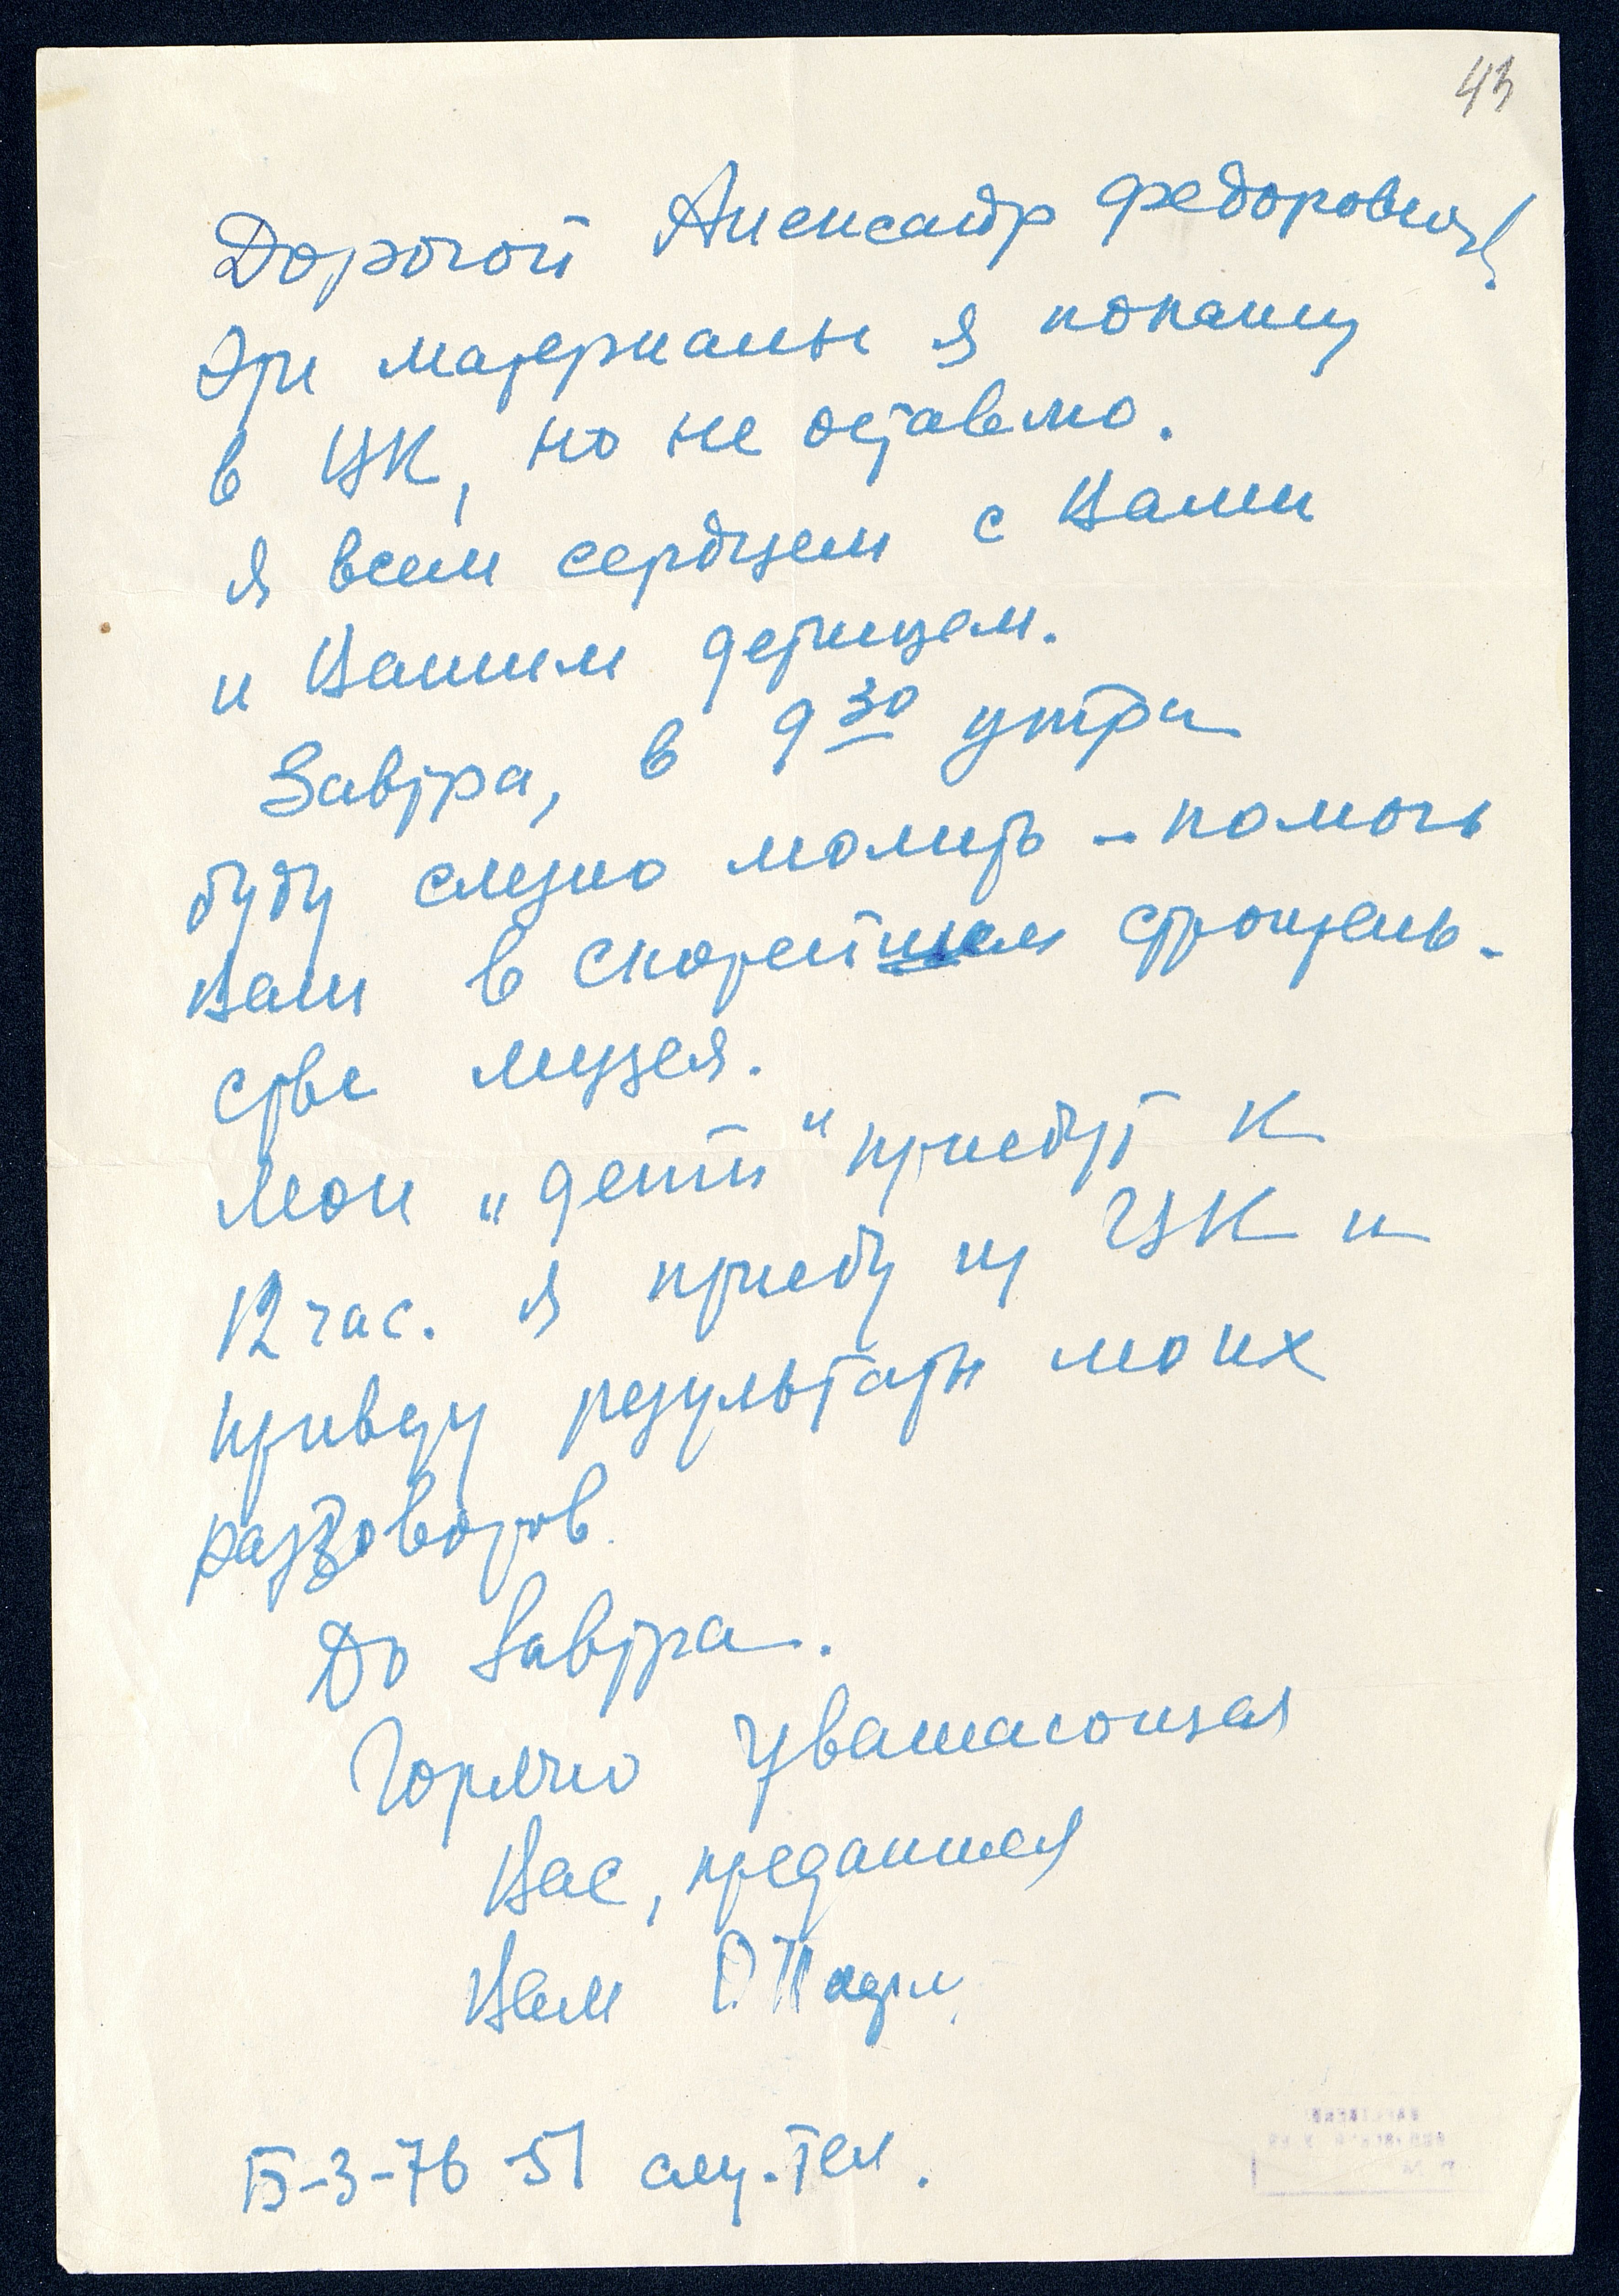 43
Дорогой Александр Федорович!
Эти материалы я покажу
в ЦК, но не оставлю.
Я всем сердцем с Вами
и Вашим детищем.
Завтра, в 9 30 утра
буду слезно молить – помочь
Вам в скорейшем строитель-
стве музея.
Мои „дети“ приедут к
12 час. Я приеду из ЦК и
привезу результаты моих
разговоров.
До завтра.
Горячо Уважающая
Вас, преданная
Вам О
Б-3-76-51 служ. тел.